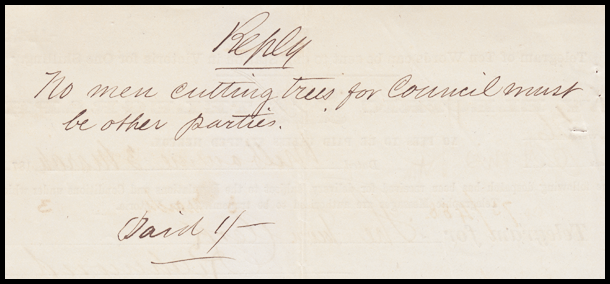 Reply
No men cutting trees for Council must
be other parties.
Paid 1/-